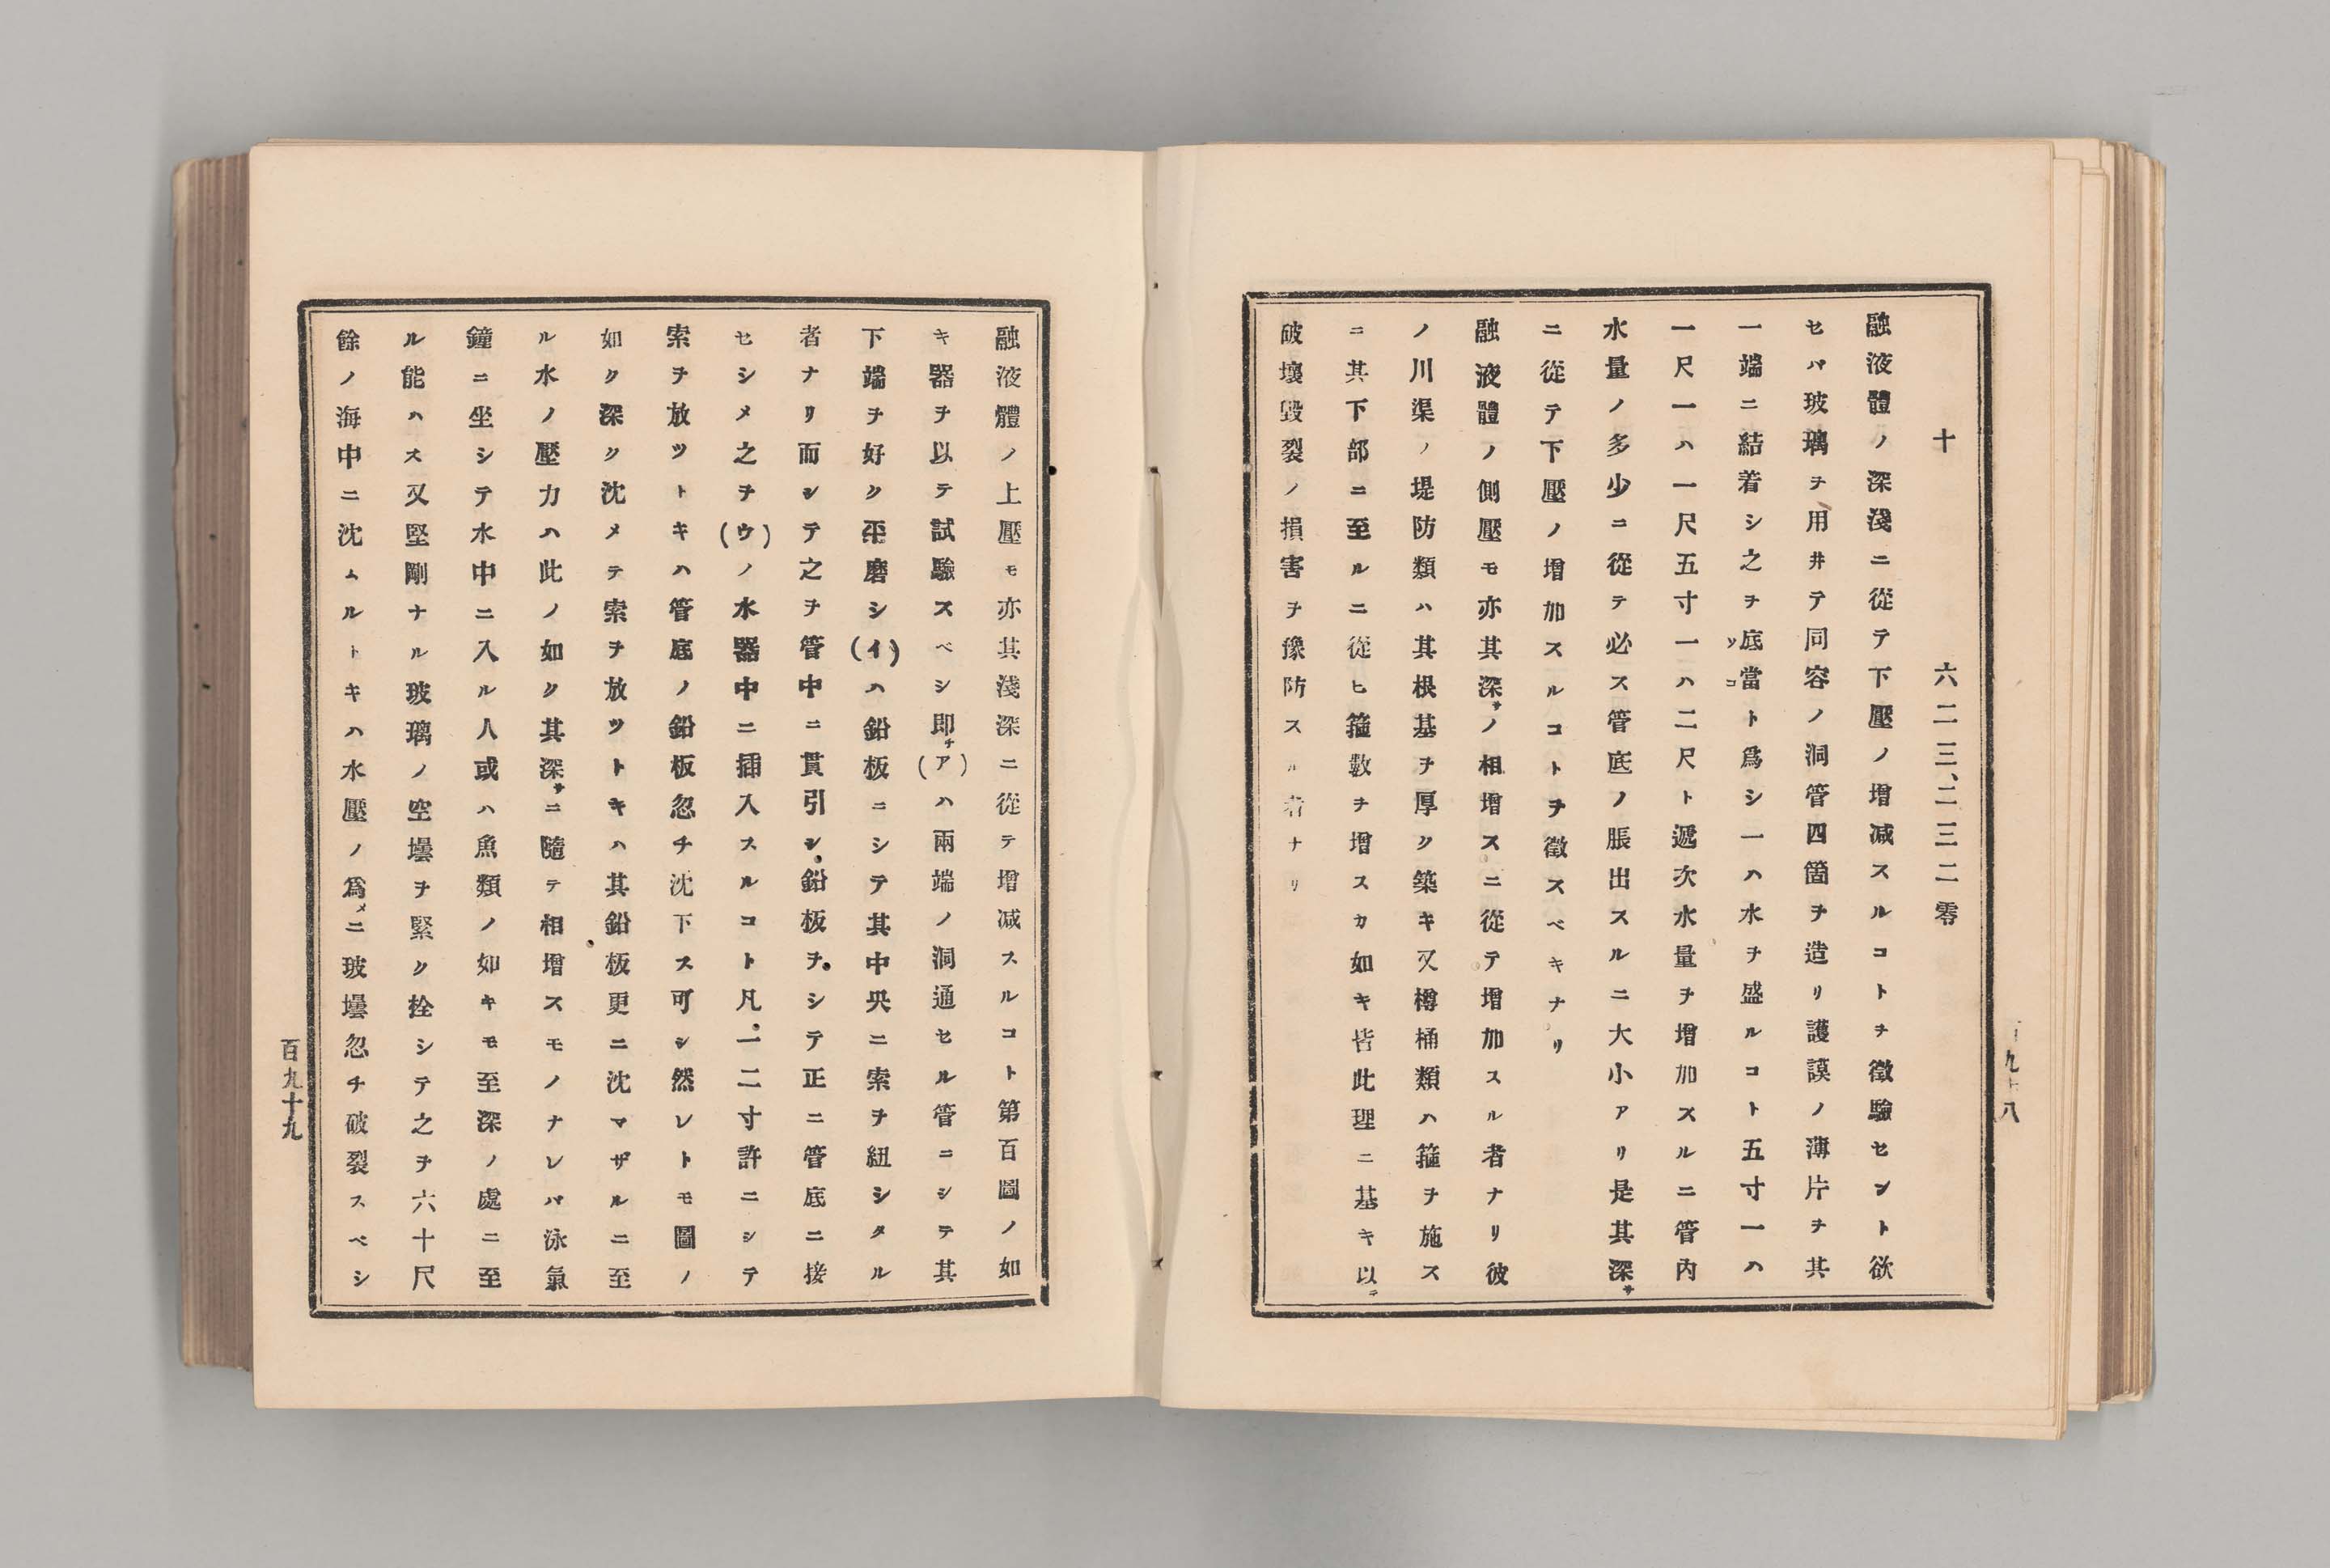 十　六二三、二三二零
融液體ノ深淺ニ從テ下壓ノ增减スルコトヲ徵驗セント欲
セバ玻璃ヲ用井テ同容ノ洞管四箇ヲ造リ護謨ノ薄片ヲ其
一端ニ結着シ之ヲ底當ト爲シ一ハ水ヲ盛ルコト五寸一ハ
ソコ
一尺一ハ一尺五寸一ハ二尺ト遞次水量ヲ增加スルニ管內
水量ノ多少ニ從テ必ス管底ノ脹出スルニ大小アリ是其深サ
ニ從テ下壓ノ增加スルコトヲ徵スベキナリ
融液體ノ側壓モ亦其深サノ相增スニ從テ增加スル者ナリ彼
ノ川渠ノ堤防類ハ其根基ヲ厚ク築キ又樽桶類ハ箍ヲ施ス
ニ其下部ニ至ルニ從ヒ箍數ヲ增スカ如キ皆此理ニ基キ以テ
破壞毀裂ノ損害ヲ豫防スル者ナリ
融液體ノ上壓モ亦其淺深ニ從テ增减スルコト第百圖ノ如
キ器ヲ以テ試驗スベシ即チ(ア)ハ兩端ノ洞通セル管ニシテ其
下端ヲ好ク平磨シ(イ)ハ鉛板ニシテ其中央ニ索ヲ紐シタル
者ナリ而シテ之ヲ管中ニ貫引シ鉛板ヲシテ正ニ管底ニ接
セシメ之ヲ(ウ)ノ水器中ニ插入スルコト凡一二寸許ニシテ
索ヲ放ツトキハ管底ノ鉛板忽チ沈下ス可シ然レトモ圖ノ
如ク深ク沈メテ索ヲ放ツトキハ其鉛板更ニ沈マザルニ至
ル水ノ壓力ハ此ノ如ク其深サニ隨テ相增スモノナレバ泳氣
鐘ニ坐シテ水中ニ入ル人或ハ魚類ノ如キモ至深ノ處ニ至
ル能ハス又堅剛ナル玻璃ノ空壜ヲ緊ク拴シテ之ヲ六十尺
餘ノ海中ニ沈ムルトキハ水壓ノ爲メニ玻壜忽チ破裂スベシ
百九十九